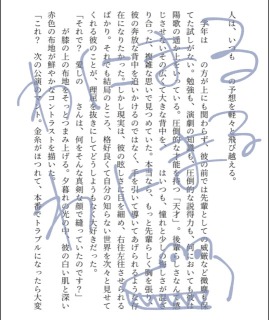 人は、いつも の予想を軽々と飛び越える。
学年は の方が上にも関わらず、彼の前では先輩としての威厳など微塵も保
てた試しがない。勉強も、演劇の知識も、圧倒的な説得力も、何においても彼は
陽歌の遥か上をいっている。圧倒的な才能を持つ「天才」。後輩らしさなんて感
じさせないその広くて大きな背中を、 はいつも、憧れと少しの悔しさが混ざ
り合った複雑な思いで見つめていた。本当なら、もっと先輩らしく胸を張って、
彼の奔放な背中を追いかけるのではなく、手を引いて導いてあげられるような存
在になりたかった。しかし現実は、彼の眩しさに目を細め、右往左往させられる
ばかり。それでも結局のところ、格好良くて自分の知らない世界を次々と見せて
くれる彼のことが、理屈抜きにしてどうしようもなく大好きだった。
「それで？ 愛しの さんは、何をそんな真剣な顔で縫っていたのです？」
が膝の上の布地をそっとつまみ上げる。夕暮れの光の中、彼の白い肌と深い
赤色の布地が鮮やかなコントラストを描いた。
「これ？ 次の公演の 金糸がほつれて、本番でトラブルになったら大変